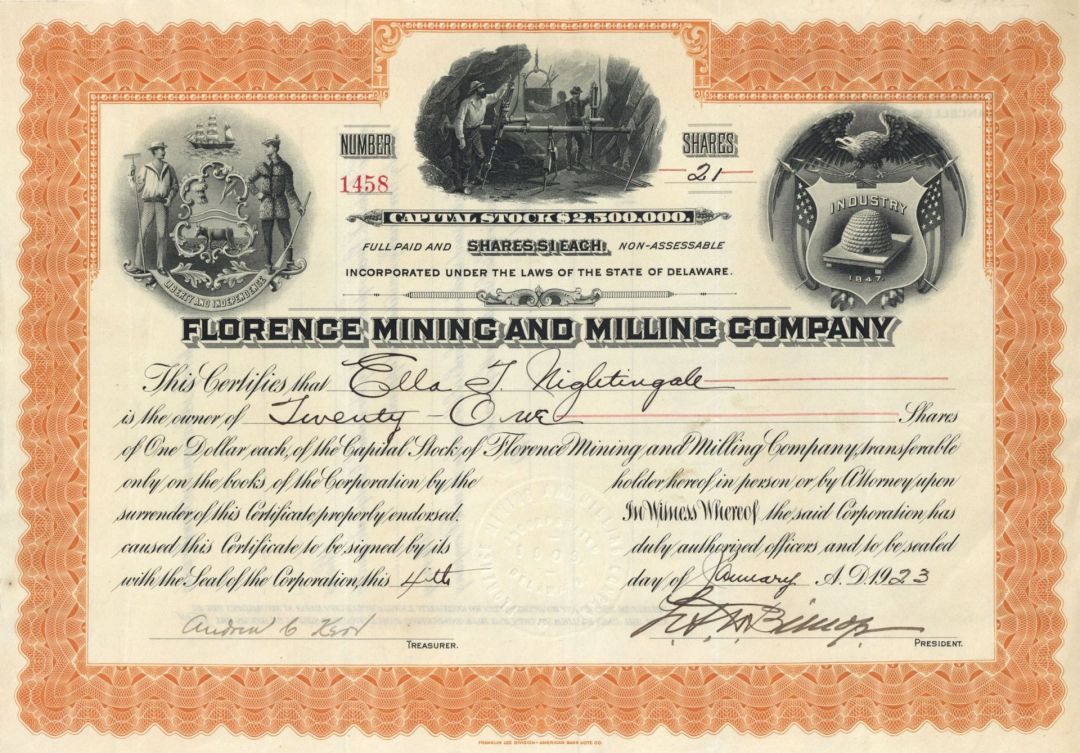 NUMBER
1458
SHARES
21
CAPITAL STOCK $2,500,000.
FULL PAID AND SHARES $1 EACH. NON-ASSESSABLE
INCORPORATED UNDER THE LAWS OF THE STATE OF DELAWARE.
LIBERTY AND INDEPENDENCE
INDUSTRY
1847
FLORENCE MINING AND MILLING COMPANY
This Certifies that Ella T. Nightingale
is the owner of Twenty-One Shares
of One Dollar each, of the Capital Stock of Florence Mining and Milling Company, transferable
only on the books of the Corporation by the holder hereof in person or by Attorney upon
surrender of this Certificate properly endorsed. In Witness Whereof the said Corporation has
caused this Certificate to be signed by its duly authorized officers and to be sealed
with the Seal of the Corporation, this 4th day of January A.D. 1923
Andrew C Kerr
TREASURER.
Bishop
PRESIDENT.
FRANKLIN LEE DIVISION - AMERICAN BANK NOTE CO.